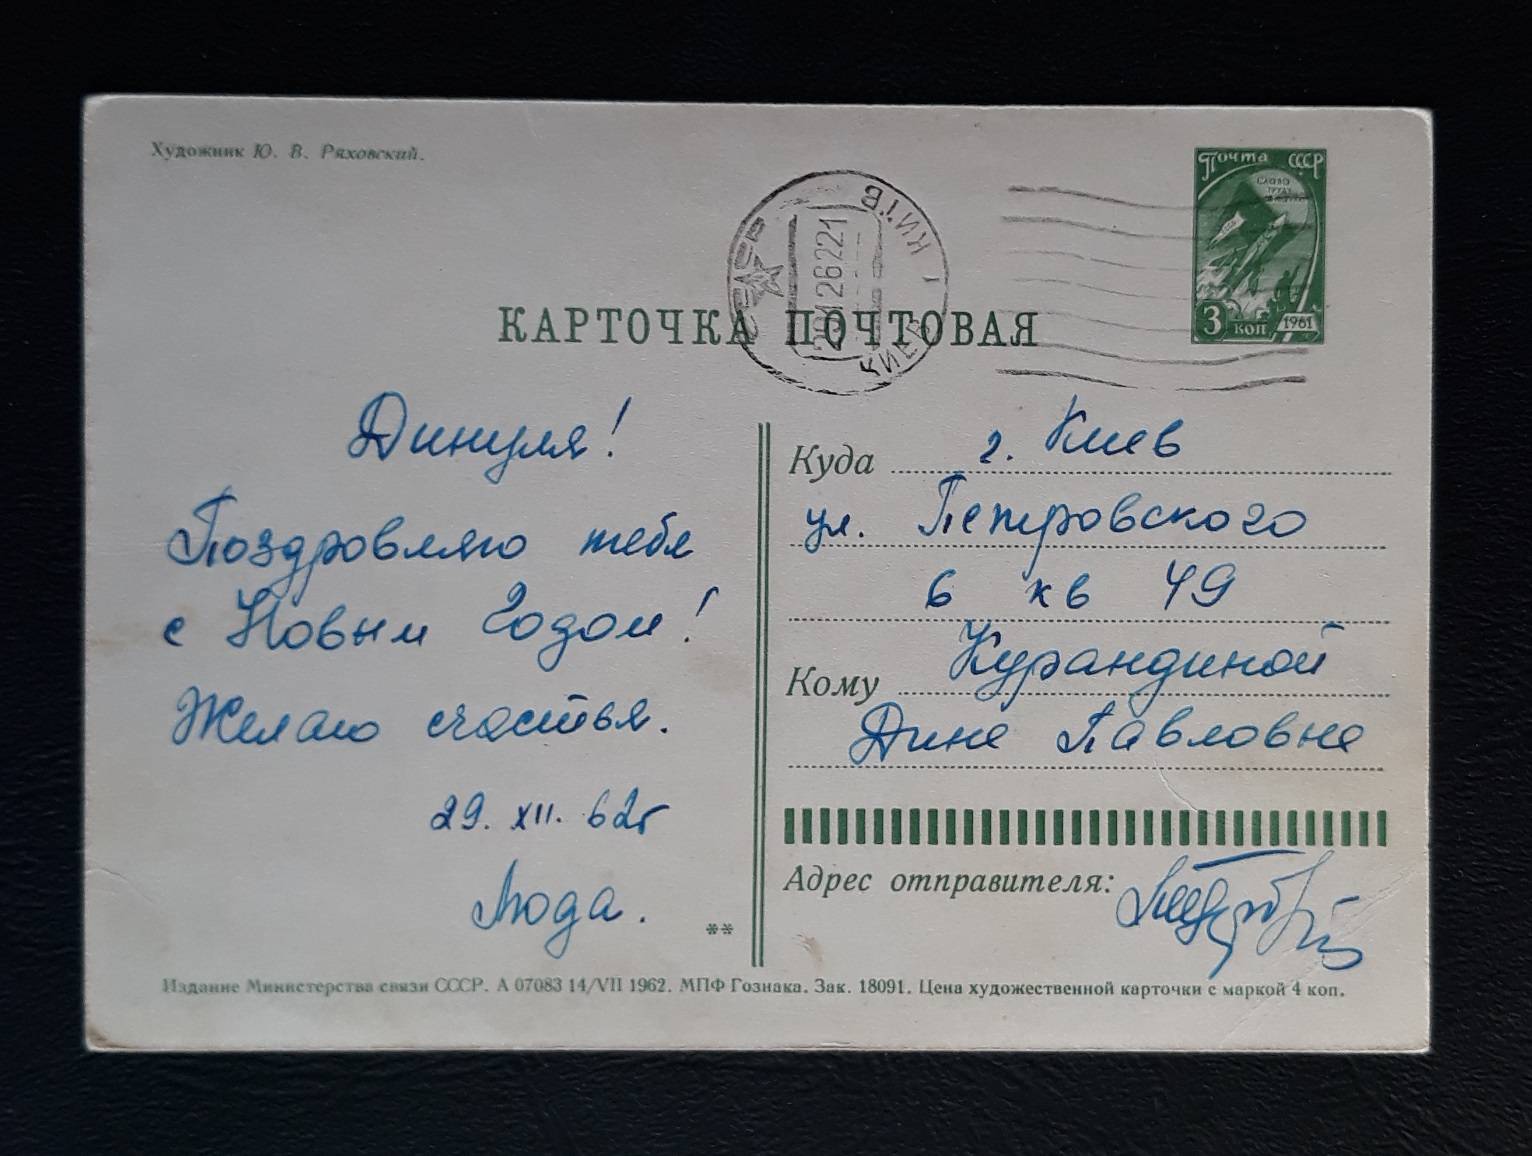 Художник Ю. В. Ряховский.
Почта СССР
СЛАВА
ТРУДУ
3 коп 1961
КИЇВ 1
КИЕВ
КАРТОЧКА ПОЧТОВАЯ
Динуля!
Поздровляю тебя
с Новым Годом!
Желаю счастья.
29. XII. 62г
Люда.
**
Куда г. Киев
ул. Петровского
6 кв 49
Кому Курандиной
Дине Павловне
Адрес отправителя:
Издание Министерства связи СССР. А 07083 14/VII 1962. МПФ Гознака. Зак. 18091. Цена художественной карточки с маркой 4 коп.